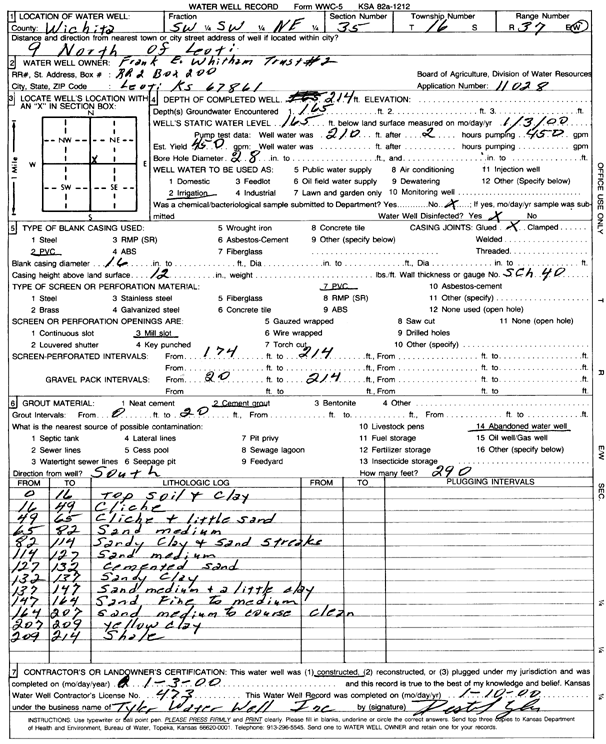 WATER WELL RECORD Form WWC-5 KSA 82a-1212
1 LOCATION OF WATER WELL: Fraction Section Number Township Number Range Number
County: Wichita SW ¼ SW ¼ NE ¼ 35 T 16 S R 37 E W
Distance and direction from nearest town or city street address of well if located within city?
9 North Of Leoti
2 WATER WELL OWNER: Frank E. Whitham Trust #2
RR#, St. Address, Box # : RR2 Box 200 Board of Agriculture, Division of Water Resources
City, State, ZIP Code : Leoti Ks 67861 Application Number: 11028
3 LOCATE WELL'S LOCATION WITH AN "X" IN SECTION BOX:
N
NW NE
W X E
SW SE
S
1 Mile
4 DEPTH OF COMPLETED WELL 214 ft. ELEVATION:
Depth(s) Groundwater Encountered 1. 165 ft. 2. ft. 3. ft.
WELL'S STATIC WATER LEVEL 165 ft. below land surface measured on mo/day/yr 1/3/00
Pump test data: Well water was 210 ft. after 2 hours pumping 450 gpm
Est. Yield 450 gpm: Well water was ft. after hours pumping gpm
Bore Hole Diameter 28 in. to ft., and in. to ft.
WELL WATER TO BE USED AS: 5 Public water supply 8 Air conditioning 11 Injection well
1 Domestic 3 Feedlot 6 Oil field water supply 9 Dewatering 12 Other (Specify below)
2 Irrigation 4 Industrial 7 Lawn and garden only 10 Monitoring well
Was a chemical/bacteriological sample submitted to Department? Yes No X ; If yes, mo/day/yr sample was submitted
Water Well Disinfected? Yes X No
5 TYPE OF BLANK CASING USED: 5 Wrought iron 8 Concrete tile CASING JOINTS: Glued X Clamped
1 Steel 3 RMP (SR) 6 Asbestos-Cement 9 Other (specify below) Welded
2 PVC 4 ABS 7 Fiberglass Threaded
Blank casing diameter 16 in. to ft., Dia in. to ft., Dia in. to ft.
Casing height above land surface 12 in., weight lbs./ft. Wall thickness or gauge No. SCh 40
TYPE OF SCREEN OR PERFORATION MATERIAL: 7 PVC 10 Asbestos-cement
1 Steel 3 Stainless steel 5 Fiberglass 8 RMP (SR) 11 Other (specify)
2 Brass 4 Galvanized steel 6 Concrete tile 9 ABS 12 None used (open hole)
SCREEN OR PERFORATION OPENINGS ARE: 5 Gauzed wrapped 8 Saw cut 11 None (open hole)
1 Continuous slot 3 Mill slot 6 Wire wrapped 9 Drilled holes
2 Louvered shutter 4 Key punched 7 Torch cut 10 Other (specify)
SCREEN-PERFORATED INTERVALS: From 174 ft. to 214 ft., From ft. to ft.
From ft. to ft., From ft. to ft.
GRAVEL PACK INTERVALS: From 20 ft. to 214 ft., From ft. to ft.
From ft. to ft., From ft. to ft.
6 GROUT MATERIAL: 1 Neat cement 2 Cement grout 3 Bentonite 4 Other
Grout Intervals: From 0 ft. to 20 ft., From ft. to ft., From ft. to ft.
What is the nearest source of possible contamination: 10 Livestock pens 14 Abandoned water well
1 Septic tank 4 Lateral lines 7 Pit privy 11 Fuel storage 15 Oil well/Gas well
2 Sewer lines 5 Cess pool 8 Sewage lagoon 12 Fertilizer storage 16 Other (specify below)
3 Watertight sewer lines 6 Seepage pit 9 Feedyard 13 Insecticide storage
Direction from well? South How many feet? 290
FROM TO LITHOLOGIC LOG FROM TO PLUGGING INTERVALS
0 16 Top Soil + Clay
16 49 Cliche
49 65 Cliche + little sand
65 82 Sand medium
82 114 Sandy Clay + Sand Streaks
114 127 Sand medium
127 132 Cemented sand
132 137 Sandy Clay
137 147 Sand medium + a little clay
147 164 Sand Fine to medium
164 207 sand medium to course clean
207 209 yellow clay
209 214 Shale
7 CONTRACTOR'S OR LANDOWNER'S CERTIFICATION: This water well was (1) constructed, (2) reconstructed, or (3) plugged under my jurisdiction and was
completed on (mo/day/year) 1-3-00 and this record is true to the best of my knowledge and belief. Kansas
Water Well Contractor's License No. 473 This Water Well Record was completed on (mo/day/yr) 1-10-00
under the business name of Tyler Water Well Inc by (signature)
INSTRUCTIONS: Use typewriter or ball point pen. PLEASE PRESS FIRMLY and PRINT clearly. Please fill in blanks, underline or circle the correct answers. Send top three copies to Kansas Department
of Health and Environment, Bureau of Water, Topeka, Kansas 66620-0001. Telephone: 913-296-5545. Send one to WATER WELL OWNER and retain one for your records.
OFFICE USE ONLY
T
R
E/W
SEC.
¼
¼
¼